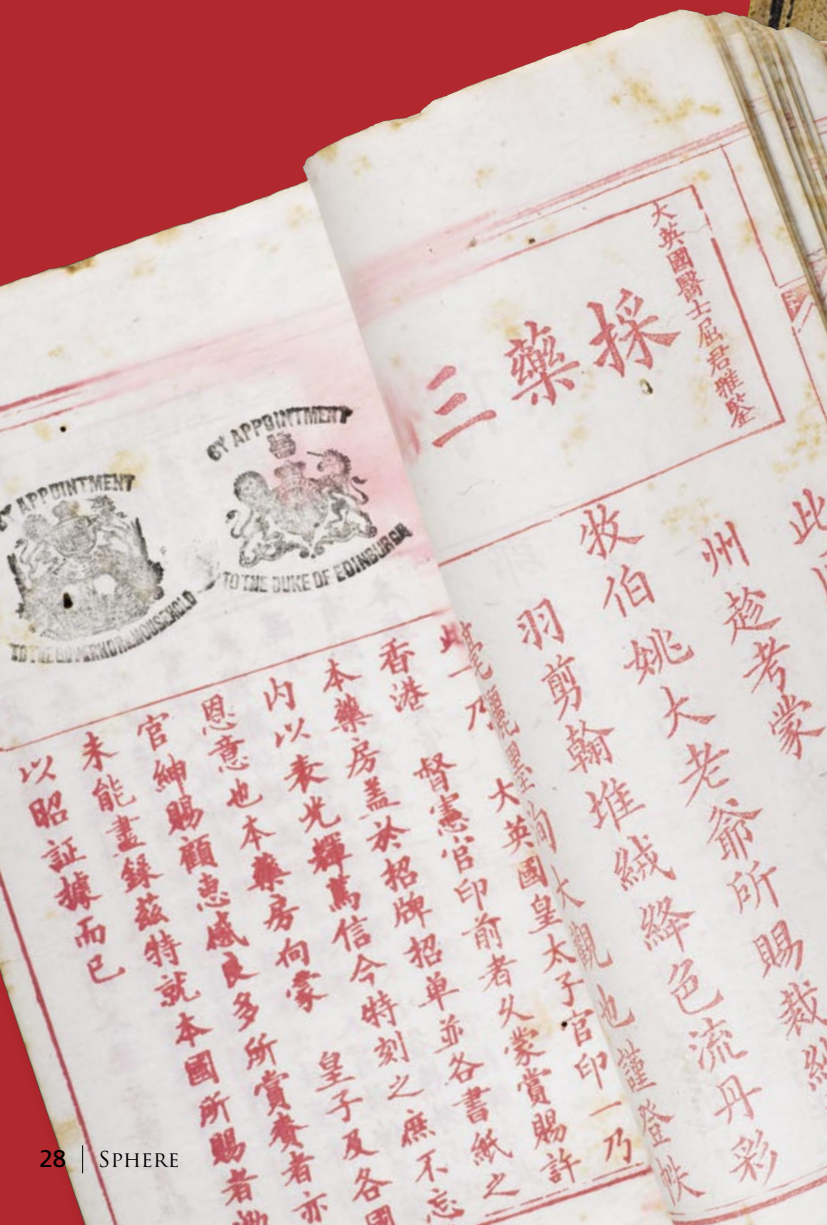 大英國醫士屈君雅鑒
採藥三
此
州趁考蒙
牧伯姚大老爺所賜裁
羽剪翰堆絨絳色流丹彩
毫灑墨洵大觀也謹登帙
BY APPOINTMENT
TO THE DUKE OF EDINBURGH
BY APPOINTMENT
TO THE GOVERNOR & HOUSEHOLD
此一乃 大英國皇太子官印一乃
香港 督憲官印前者久蒙賞賜許
本藥房蓋於招牌招單並各書紙之
内以表光輝萬信今特刻之庶不忘
恩意也本藥房向蒙 皇子及各國
官紳賜顧惠感良多所賞賚者亦
未能盡錄茲特就本國所賜者
以昭証據而已
28 | SPHERE